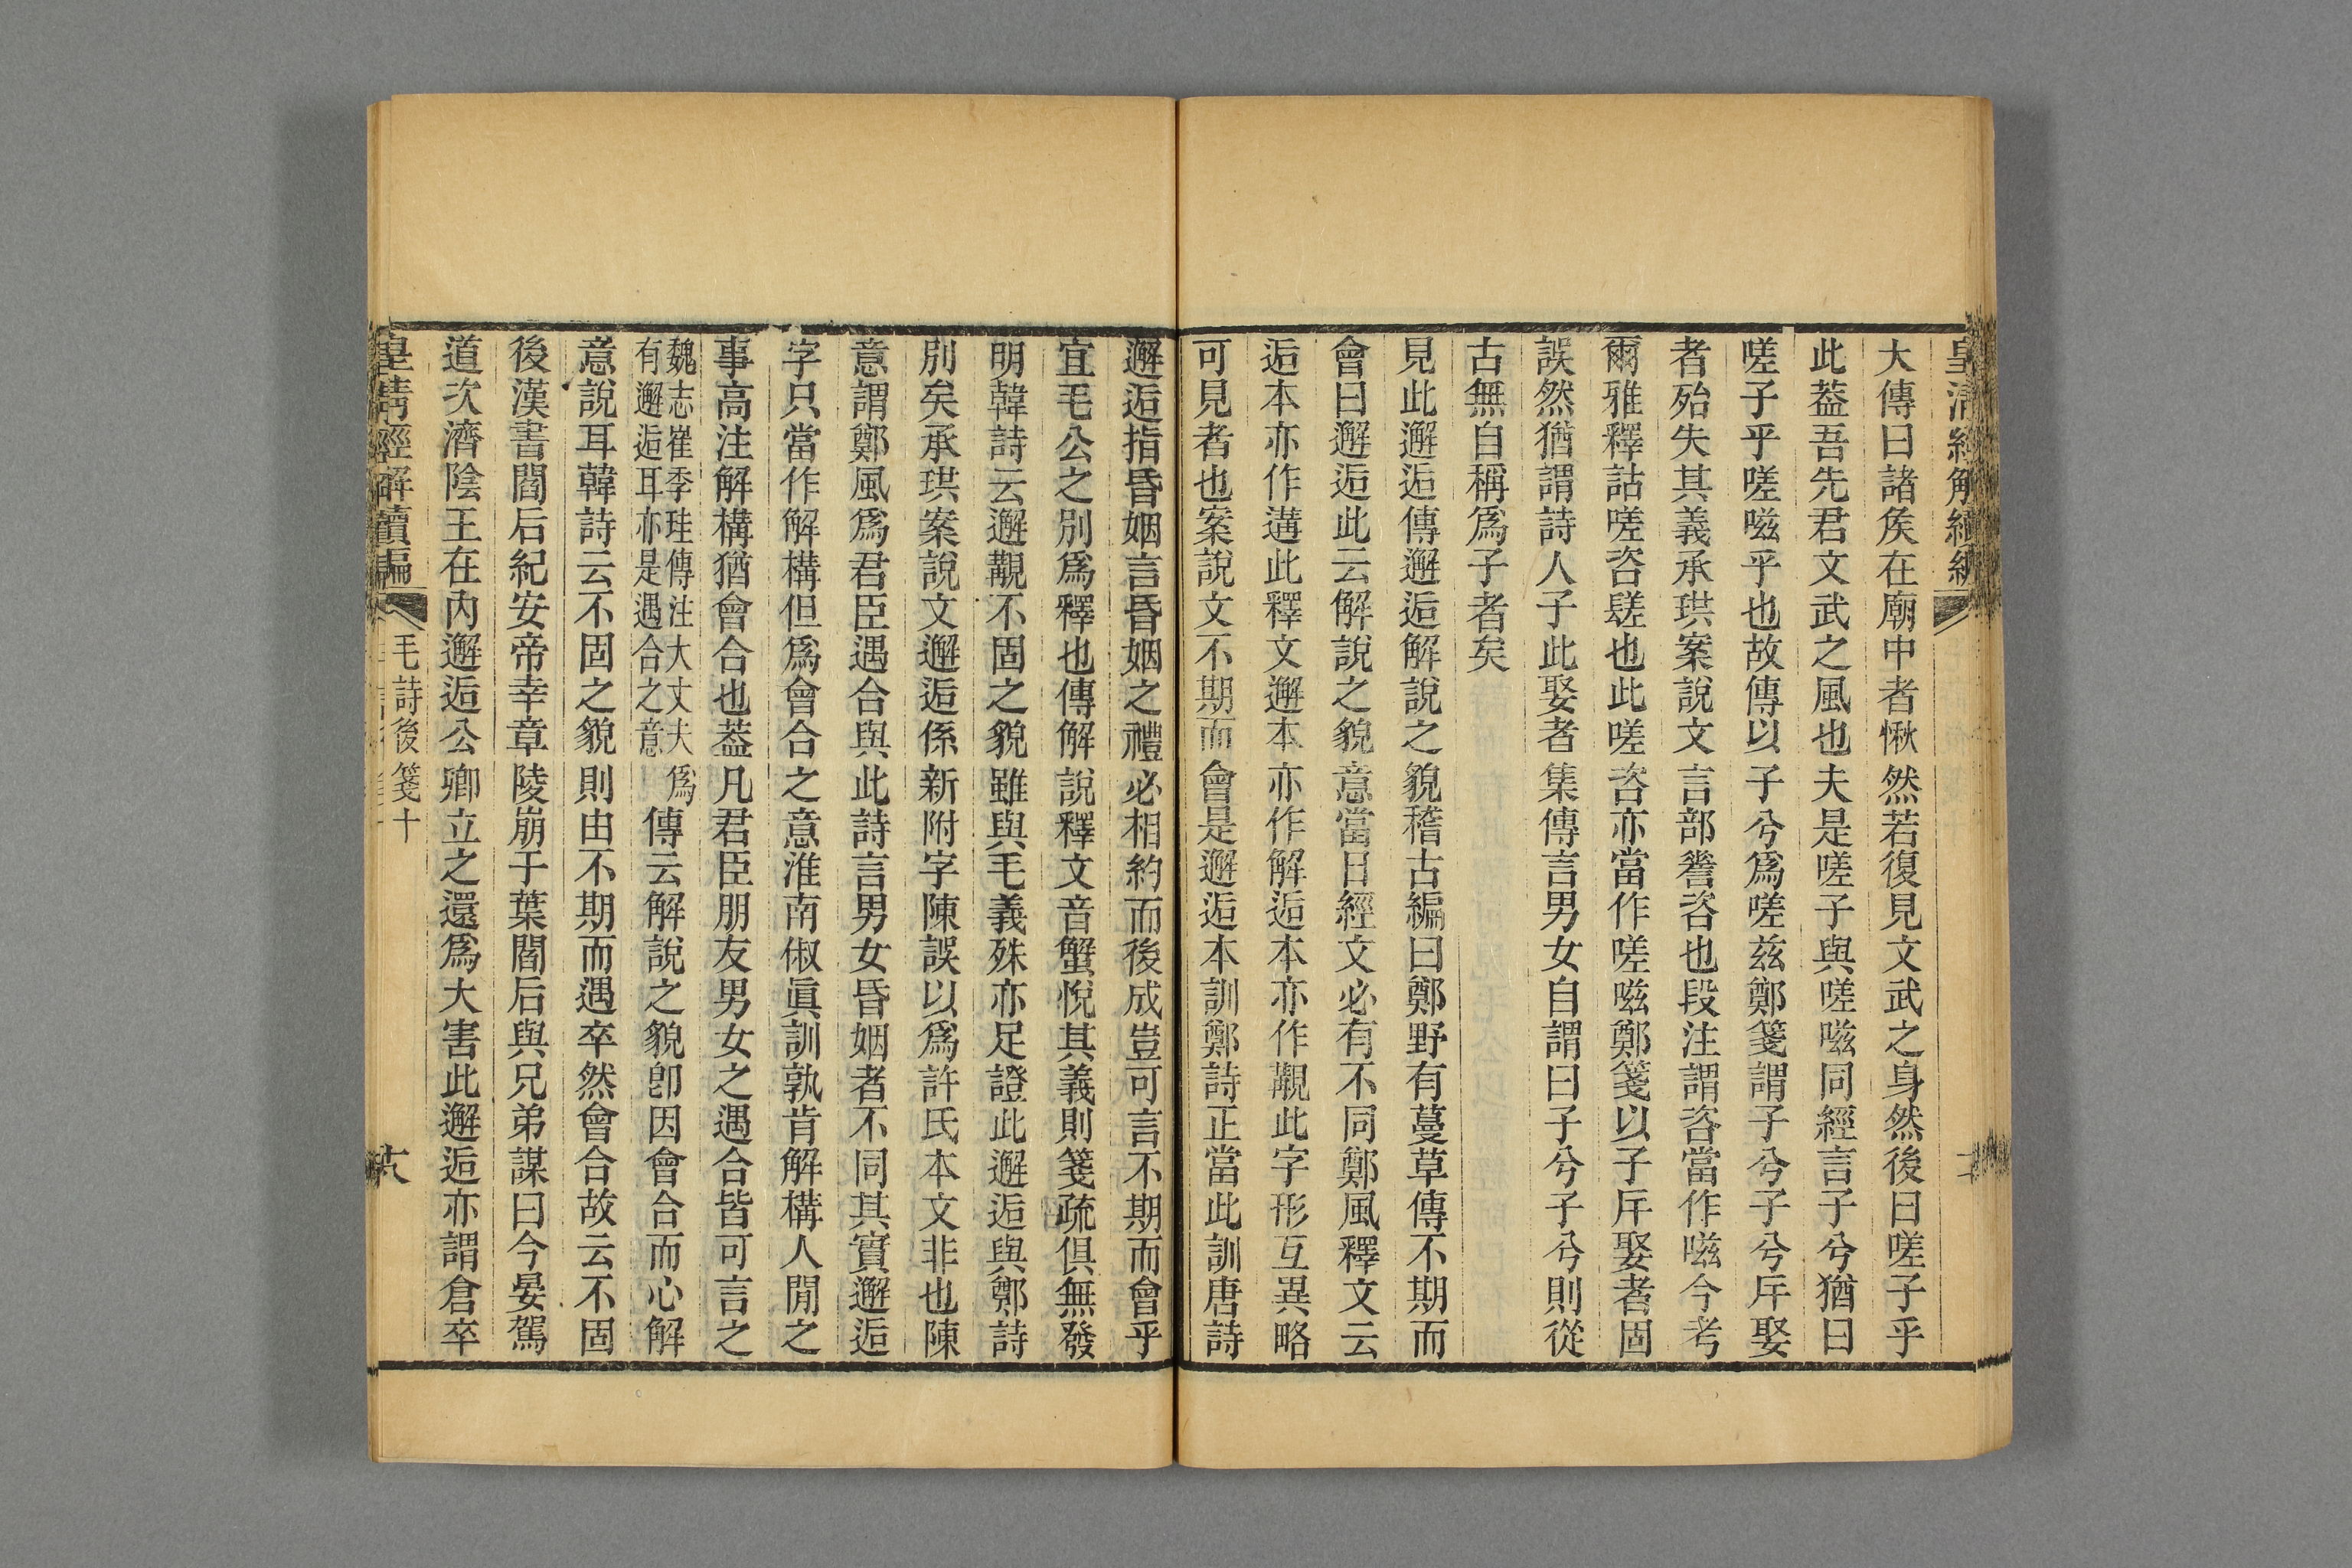 大傳曰諸矦在廟中者愀然若復見文武之身然後曰嗟子乎
此葢吾先君文武之風也夫是嗟子與嗟嗞同經言子兮猶曰
嗟子乎嗟嗞乎也故傳以子兮爲嗟茲鄭箋謂子兮子兮斥娶
者殆失其義承珙案說文言部謍咨也段注謂咨當作嗞今考
爾雅釋詁嗟咨䰈也此嗟咨亦當作嗟嗞鄭箋以子斥娶者固
誤然猶謂詩人子此娶者集傳言男女自謂曰子兮子兮則從
古無自稱爲子者矣
見此邂逅傳邂逅解說之貌稽古編曰鄭野有蔓草傳不期而
會曰邂逅此云解說之貌意當日經文必有不同鄭風釋文云
逅本亦作遘此釋文邂本亦作解逅本亦作覯此字形互異略
可見者也案說文不期而會是邂逅本訓鄭詩正當此訓唐詩
邂逅指昏姻言昏姻之禮必相約而後成豈可言不期而會乎
宜毛公之別爲釋也傳解說釋文音蟹悅其義則箋疏俱無發
明韓詩云邂覯不固之貌雖與毛義殊亦足證此邂逅與鄭詩
別矣承珙案說文邂逅係新附字陳誤以爲許氏本文非也陳
意謂鄭風爲君臣遇合與此詩言男女昏姻者不同其實邂逅
字只當作解構但爲會合之意淮南俶眞訓孰肯解構人閒之
事高注解構猶會合也葢凡君臣朋友男女之遇合皆可言之
魏志崔季珪傳注大丈夫爲
有邂逅耳亦是遇合之意
傳云解說之貌卽因會合而心解
意說耳韓詩云不固之貌則由不期而遇卒然會合故云不固
後漢書閻后紀安帝幸章陵崩于葉閻后與兄弟謀曰今晏駕
道次濟陰王在內邂逅公卿立之還爲大害此邂逅亦謂倉卒
皇清經解續編
毛詩後箋十